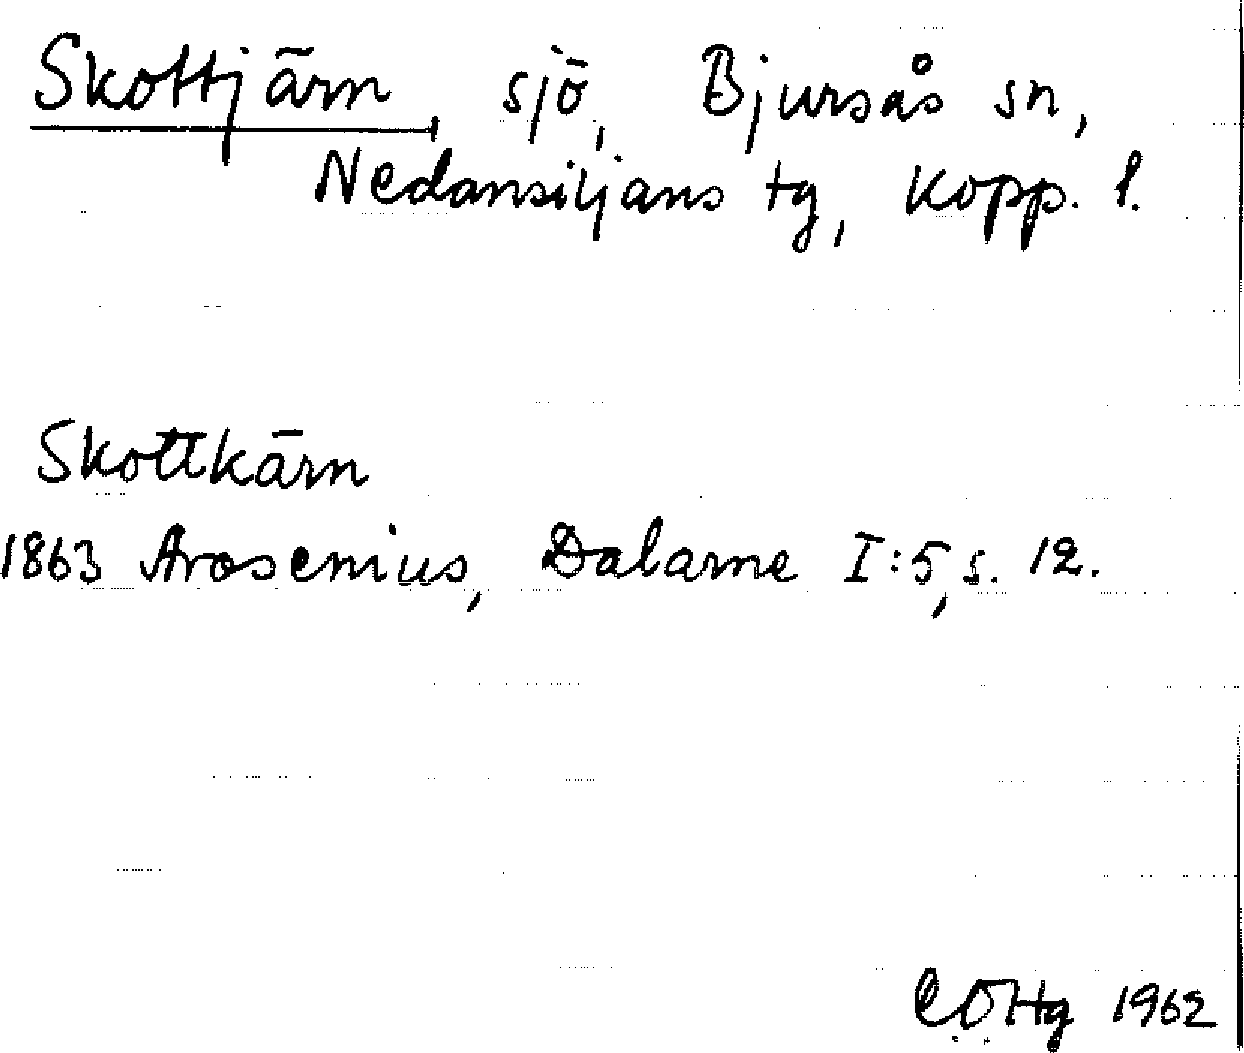 Skottjärn, sjö, Bjursås sn,
Nedansiljans tg, Kopp. l.
Skottkärn
1863 Arosenius, Dalarne I:5, s. 12.
COHg 1962